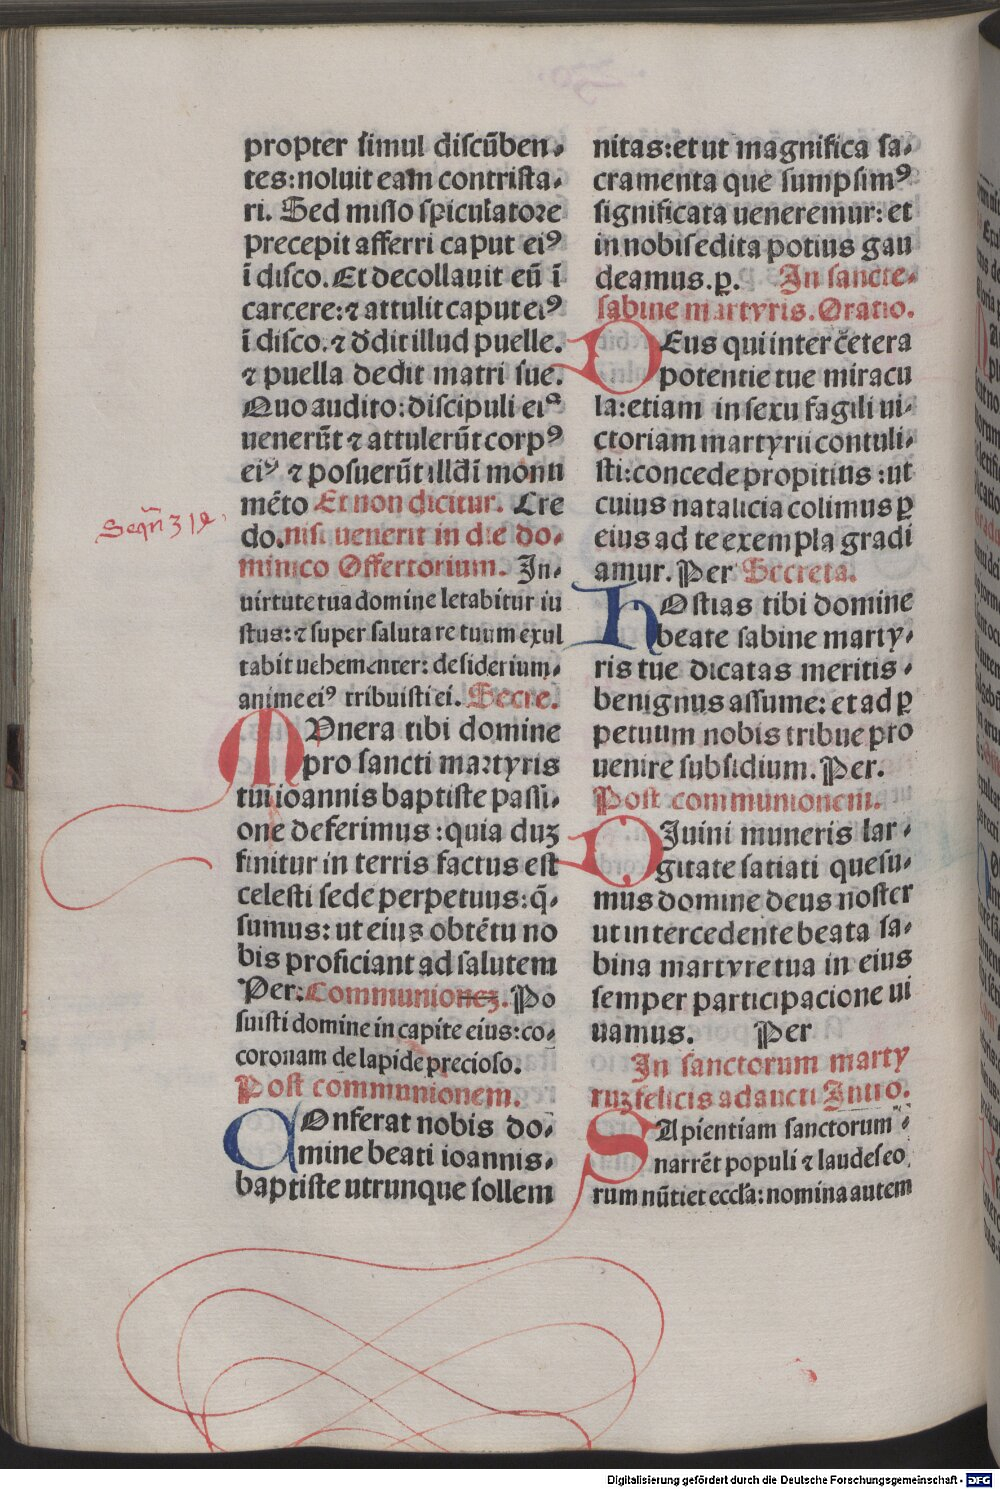 propter simul discūben⸗
tes:noluit eam contrista⸗
ri. Sed misso spiculatore
precepit afferri caput eiꝰ
ī disco. Et decollauit eū ī
carcere: ⁊ attulit caput eiꝰ
ī disco. ⁊ d̄dit illud puelle.
⁊ puella dedit matri sue.
Quo audito: discipuli eiꝰ
uenerūt ⁊ attulerūt corpꝰ
eiꝰ ⁊ posuerūt illd̄ ī monu
mēto Et non dicitur. Cre
do. nisi uenerit in die do⸗
minico Offertorium. In⸗
uirtute tua domine letabitur iu
stus: ⁊ super salutare tuum exul
tabit uehementer: desiderium⸗
anime eiꝰ tribuisti ei. Secre.
MVnera tibi domine
pro sancti martyris
tui ioannis baptiste passi⸗
one deferimus: quia duꝫ
finitur in terris factus est
celesti sede perpetuus: q̄⸗
sumus: ut eius obtētu no
bis proficiant ad salutem
Per: Communioneꝫ. Po
suisti domine in capite eius: co⸗
coronam de lapide precioso.
Post communionem.
COnferat nobis do⸗
mine beati ioannis⸗
baptiste utrunque sollem
Seqn̄ 312
nitas: et ut magnifica sa⸗
cramenta que sumpsimꝰ
significata ueneremur: et
in nobis edita potius gau
deamus. p̄. In sancte⸗
sabine martyris. Oratio.
DEus qui inter cetera
potentie tue miracu
la: etiam in sexu fagili ui⸗
ctoriam martyrii contuli⸗
sti: concede propitius: ut
cuius natalicia colimus ꝑ
eius ad te exempla gradi
amur. Per Secreta.
HOstias tibi domine
beate sabine marty⸗
ris tue dicatas meritis⸗
benignus assume: et ad ꝑ
petuum nobis tribue pro
uenire subsidium. Per.
Post communionem.
DIuini muneris lar⸗
gitate satiati quesu⸗
mus domine deus noster
ut intercedente beata sa⸗
bina martyre tua in eius
semper participacione ui
uamus. Per
In sanctorum marty
ruꝫ felicis adaucti Introi.
SApientiam sanctorum⸗
narrēt populi ⁊ laudes eo
rum nūtiet eccl̄a: nomina autem
Digitalisierung gefördert durch die Deutsche Forschungsgemeinschaft - DFG